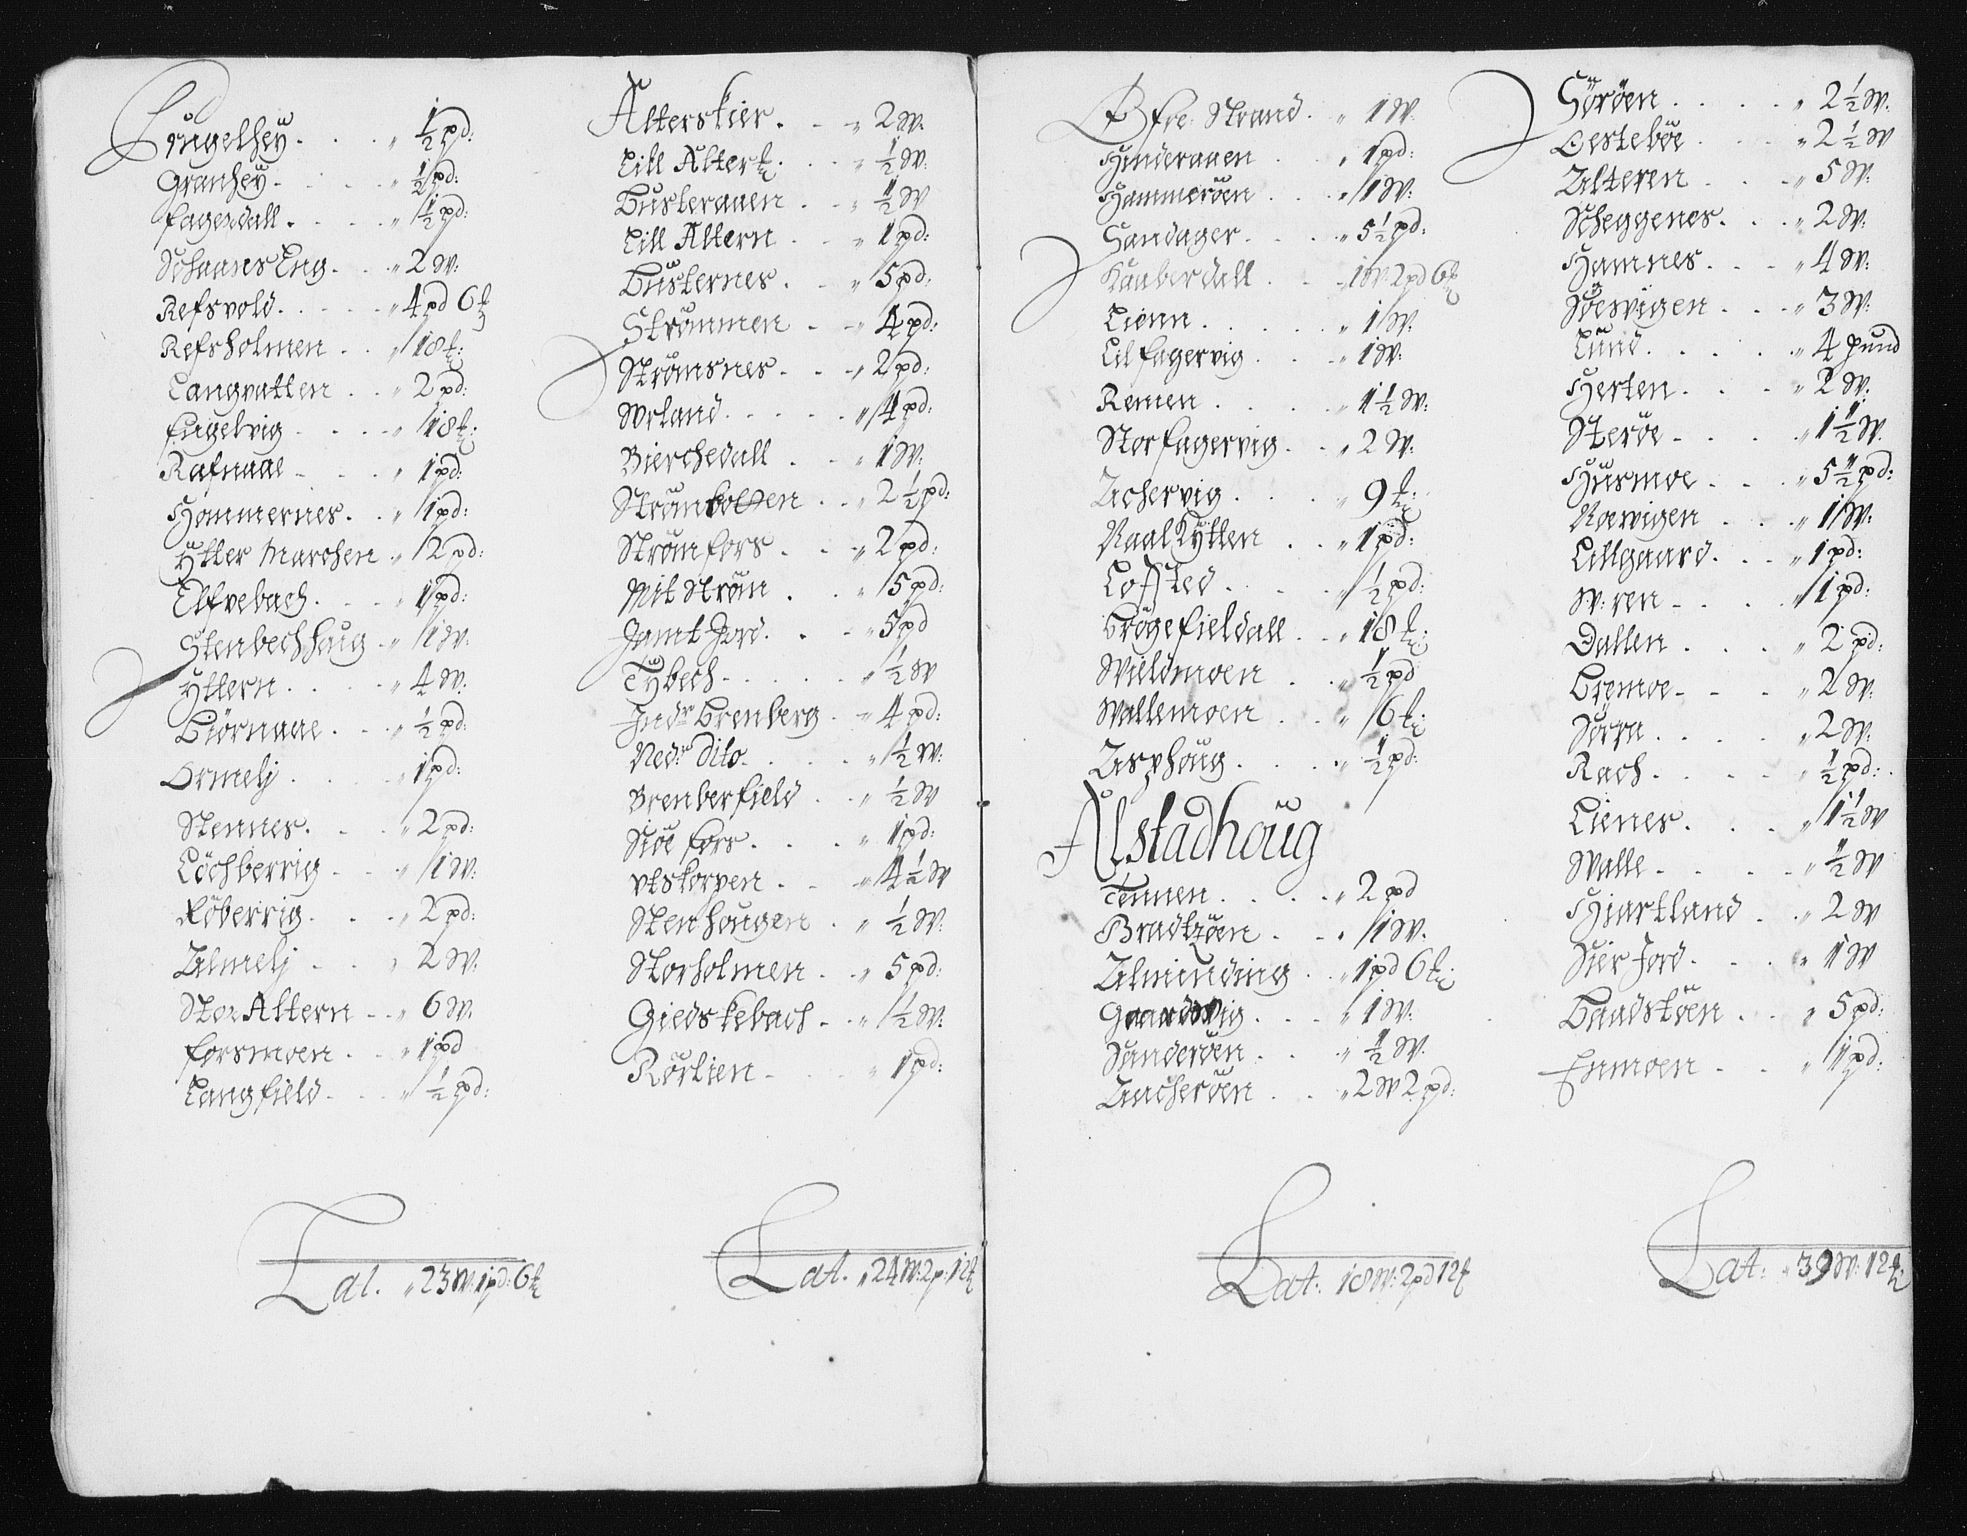 Engelhey . . . „ ½ pd:
Granhey . . . „ ½ pd:
Fagerdall . . . „ 1½ pd:
Schaans Eng . . „ 2 W:
Refsvold . . . „ 4 pd 6 ℔
Refsholmen . . „ 18 ℔:
Langvatten . . „ 2 pd:
Engelvig . . . „ 18 ℔:
Rafnaae . . . „ 1 pd:
Hammernes . . „ 1 pd:
Ytter Marchen . „ 2 pd:
Elfvebach . . . 1 pd:
Stenbechhaug . „ 1 W:
Yttern . . . „ 4 W:
Biörnaae . . . „ ½ pd:
Ormelj . . . „ 1 pd:
Stennes . . . „ 2 pd:
Löchberrig . . „ 1 W:
Röberrig . . . „ 2 pd:
Almelj . . . „ 2 W:
Stor Altern . . „ 6 W:
Forsmoen . . „ 1 pd
Langfield . . . „ ½ pd:
Lat. „ 23 W: 1 pd: 6 ℔
Alterskier . . „ 2 W.
Lill Alter ℔ . . „ ½ W:
Busteraaen . . „ ½ W
Lill Altern . . „ 1 pd:
Busternes . . „ 5 pd:
Strömmen . . „ 4 pd:
Strömsnes . . „ 2 pd:
Wrland . . . „ 4 pd:
Bierchedall . . „ 1 W:
Strömbotten . . „ 2½ pd:
Strömfors . . „ 2 pd:
Mit Ström . . „ 5 pd:
Jamt Jord . . „ 5 pd
Tybech . . . „ ½ W
Indr Brenberg . „ 4 pd:
Nedr Dito . . . „ ½ W:
Brenberfield . . „ ½ W
Siöe fors . . . „ 1 pd:
Vtskorpen . . „ 4½ W
Stenhougen . . „ ½ W:
Storholmen . . „ 5 pd:
Giedskebach . . „ ½ W:
Rörlien . . . „ 1 pd:
Lat. „ 24 W: 2 p: 12 ℔
Öfre Strand . „ 1 W
Hinderaaen . . „ 1 pd:
Hammeröen . . „ 1 W:
Sandager . . . „ 5½ pd:
Kaaberdall . . „ 1 W 2 pd 6 ℔
Lienn . . . „ 1 W:
Lil fagervig . . „ 1 W:
Remen . . . „ 1½ W:
Storfagervig . . „ 2 W.
Achervig . . . „ 9 ℔:
Raal Kytten . . „ 1 pd:
Lofsted . . . „ ½ pd:
Brögefieldall . . „ 18 ℔:
Wieldmoen . . „ ½ pd
Wallemoen . . „ 6 ℔:
Asphoug . . . „ ½ pd:
Alstadhoug
Tennen . . . „ 2 pd
Bradtzöen . . „ 1 W.
Alminding . . „ 1 pd 6 ℔:
Gaardsvig . . „ 1 W:
Sanderöen . . „ ½ W.
Aacheröen . . „ 2 W 2 pd:
Lat: 18 W: 2 pd 12 ℔
Söröen . . . „ 2½ W.
Oesteböe . . . „ 2½ W
Alteren . . . „ 5 W.
Scheggenes . . „ 2 W.
Hamnes . . . „ 4 W.
Söevigen . . „ 3 W.
Lund . . . „ 4 pund
Herten . . . „ 2 W.
Steröe . . . „ 1½ W.
Husmoe . . . „ 5½ pd:
Roevigen . . „ 1 W:
Lillgaard . . „ 1 pd:
W:ren . . . „ 1 pd:
Dallen . . . „ 2 pd:
Bremoe . . . „ 2 W:
Sörra . . . „ 2 W:
Rach . . . „ ½ pd:
Lienes . . . „ 1½ W
Walle . . . „ ½ W
Hjartland . . „ 2 W
Sier Jord . . „ 1 W
Baadstöen . . „ 5 pd:
Enmoen . . „ 1 pd:
Lat: „ 39 W: 12 ℔: